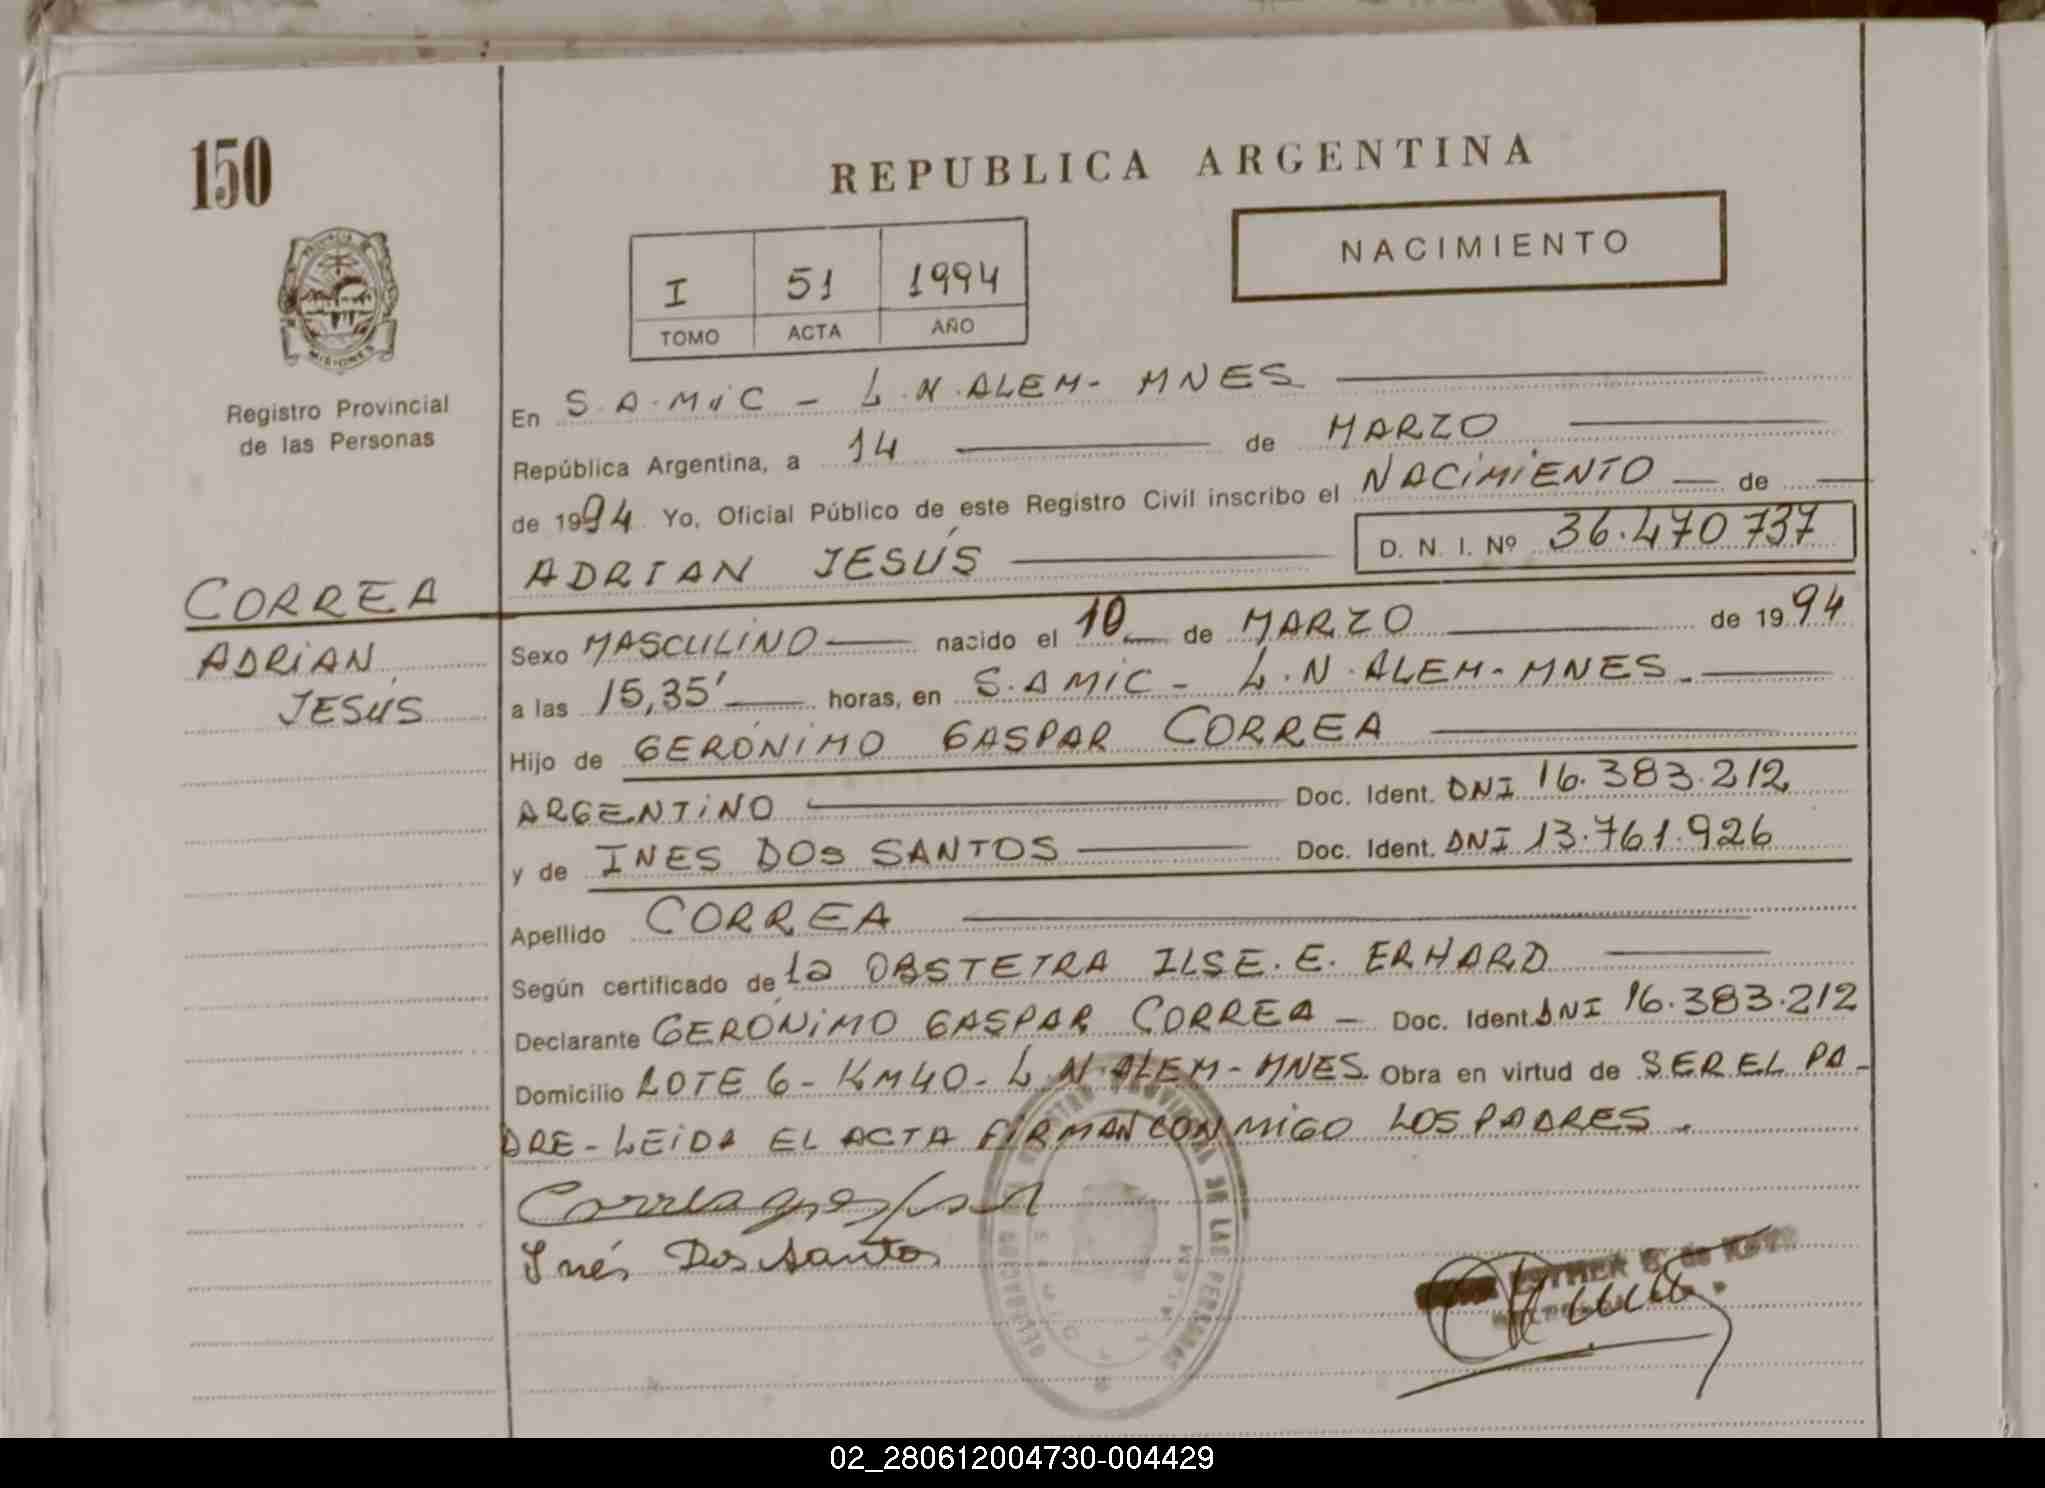 150
REPUBLICA ARGENTINA
NACIMIENTO
I 51 1994
TOMO ACTA AÑO
PROVINCIA DE
MISIONES
Registro Provincial
de las Personas
En S.A.MiC - L.N.ALEM- MNES
República Argentina, a 14 de MARZO
de 1994 Yo, Oficial Público de este Registro Civil inscribo el NACIMIENTO de
ADRIAN JESÚS D. N. I. Nº 36.470737
CORREA
ADRIAN
JESÚS
Sexo MASCULINO nacido el 10 de MARZO de 1994
a las 15,35' horas, en S.AMIC - L.N.ALEM-MNES.
Hijo de GERÓNIMO GASPAR CORREA
ARGENTINO Doc. Ident. DNI 16.383.212
y de INES DOS SANTOS Doc. Ident. DNI 13.761.926
Apellido CORREA
Según certificado de la OBSTETRA ILSE.E. ERHARD
Declarante GERÓNIMO GASPAR CORREA - Doc. Ident. DNI 16.383.212
Domicilio LOTE 6- KM40- L.N.ALEM-MNES. Obra en virtud de SER EL PA-
DRE-LEIDA EL ACTA FIRMAN CONMIGO LOS PADRES.
Correa
Inés Dos Santos
ESTHER
02_280612004730-004429